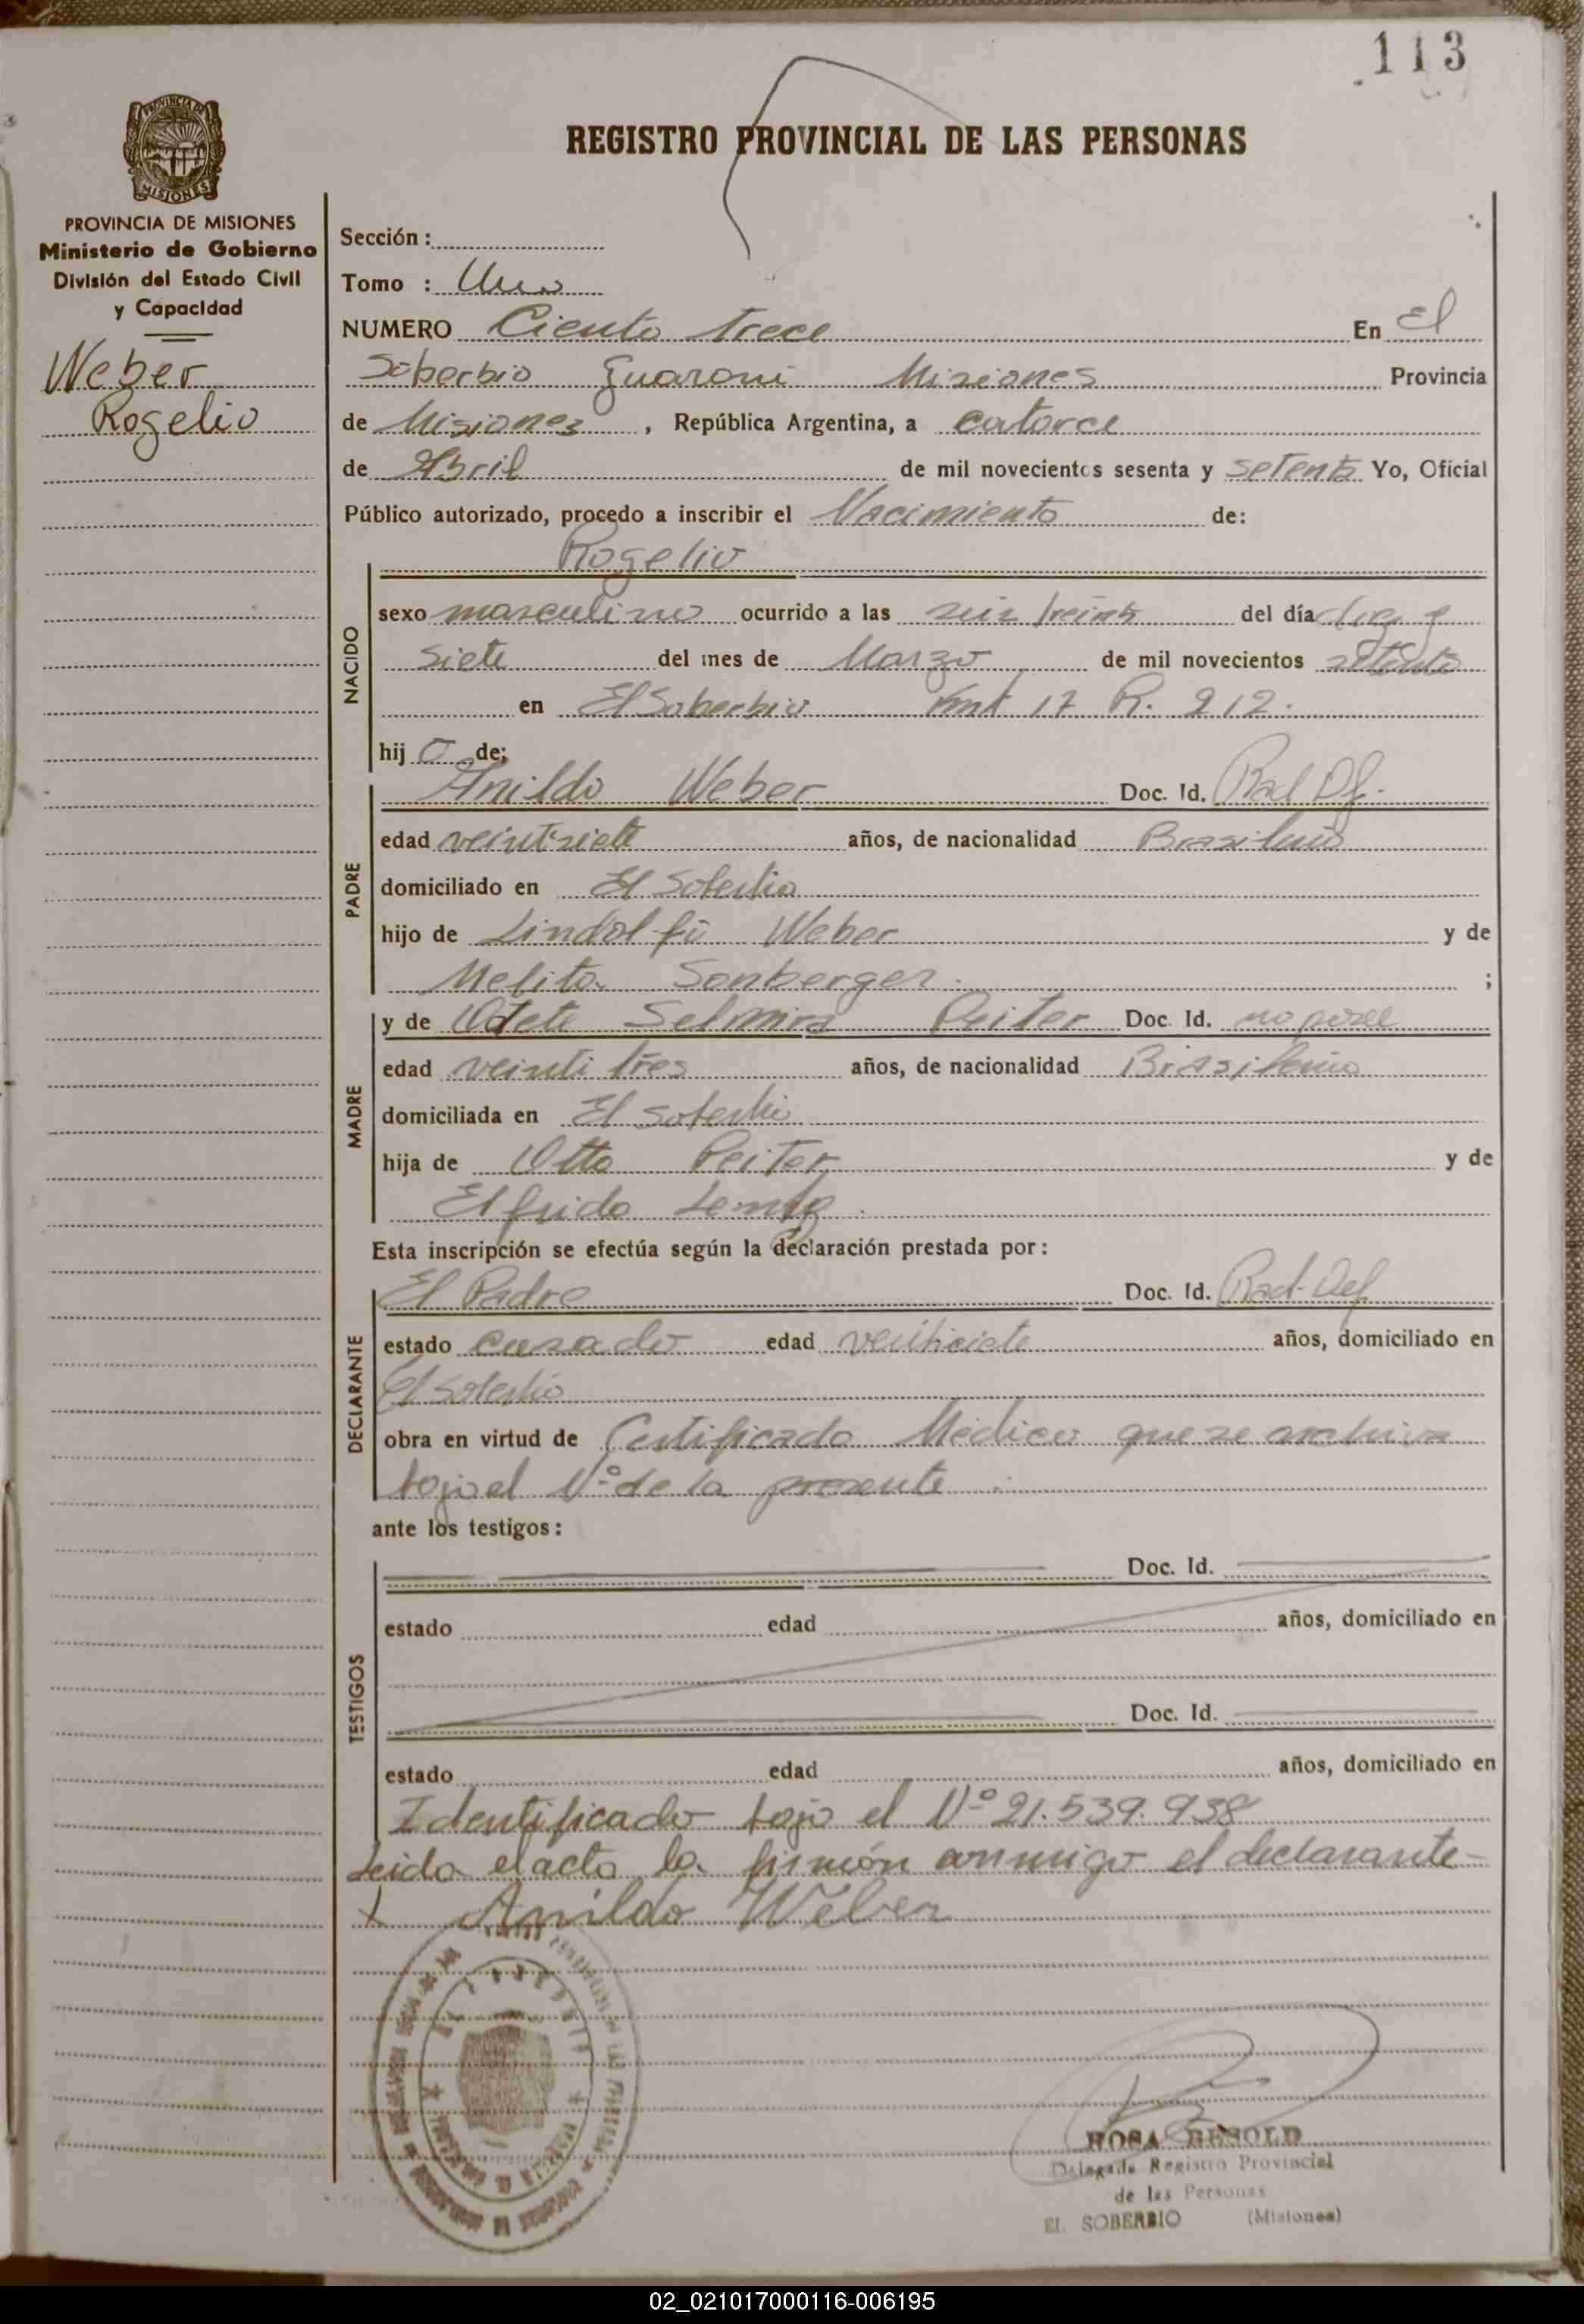 113
REGISTRO PROVINCIAL DE LAS PERSONAS
PROVINCIA DE MISIONES
PROVINCIA DE MISIONES
Ministerio de Gobierno
División del Estado Civil
y Capacidad
Weber
Rogelio
Sección :
Tomo : Uno
NUMERO Ciento trece En El
Soberbio Guaraní Misiones Provincia
de Misiones , República Argentina, a catorce
de Abril de mil novecientos sesenta y setenta Yo, Oficial
Público autorizado, procedo a inscribir el Nacimiento de:
NACIDO
Rogelio
sexo masculino ocurrido a las seis treinta del día diez y
siete del mes de Marzo de mil novecientos setenta
en El Soberbio Kmt 17 R. 212.
hij o de;
PADRE
Anildo Weber Doc. Id. Rad Df.
edad veintisiete años, de nacionalidad Brasileño
domiciliado en El Soberbio
hijo de Lindolfo Weber y de
Melita Sonberger. ;
MADRE
y de Odete Selmira Peiter Doc. Id. no posee
edad veinti tres años, de nacionalidad Brasileña
domiciliada en El Soberbio
hija de Otto Peiter y de
Elfrida Lentz.
Esta inscripción se efectúa según la declaración prestada por:
DECLARANTE
El Padre Doc. Id. Rad. Def
estado casado edad veintisiete años, domiciliado en
El Soberbio
obra en virtud de Certificado Médico que se archiva
bajo el Nº de la presente.
ante los testigos:
TESTIGOS
Doc. Id.
estado edad años, domiciliado en
Doc. Id.
estado edad años, domiciliado en
Identificado bajo el Nº 21.539.938
Leida el acta la firmón conmigo el declarante-
x Anildo Weber
ROSA BESOLD
Delegada Registro Provincial
de las Personas
EL SOBERBIO (Misiones)
02_021017000116-006195